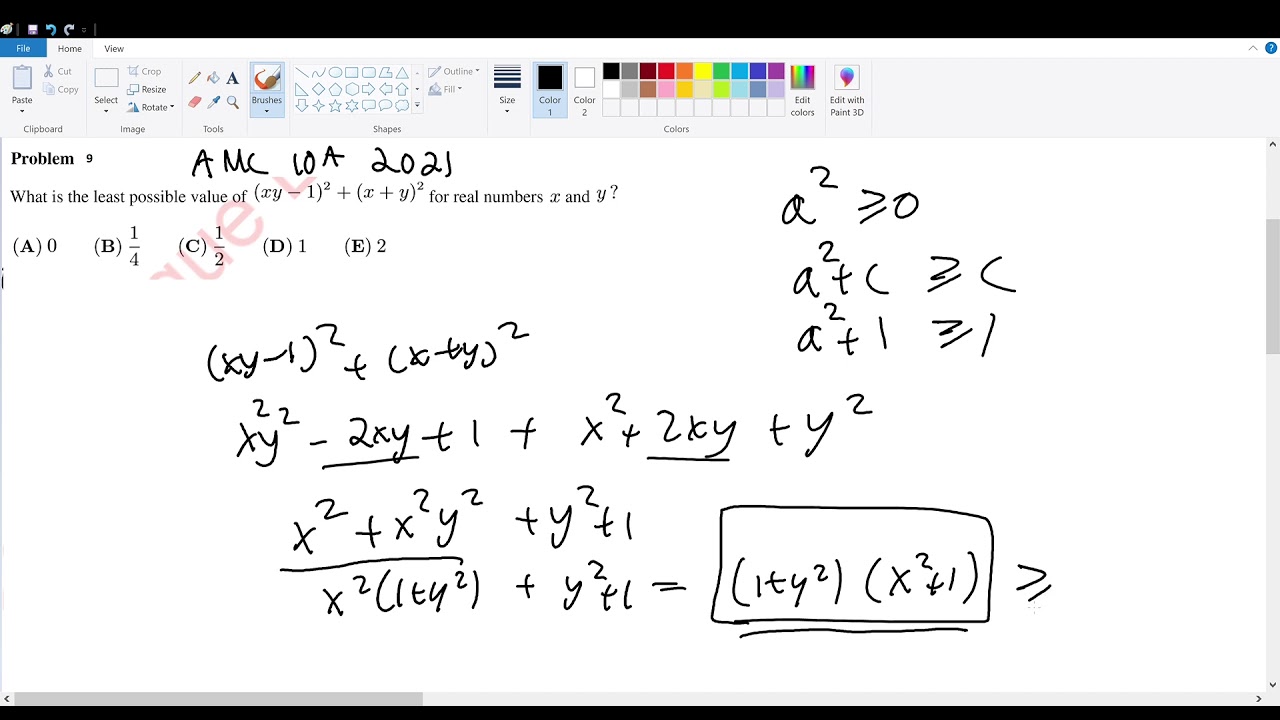 File Home View
Paste Cut Copy Clipboard
Select Crop Resize Rotate Image
Tools
Brushes
Outline Fill Shapes
Size
Color 1 Color 2 Edit colors Edit with Paint 3D Colors
Problem 9 AMC 10A 2021
What is the least possible value of (xy − 1)² + (x + y)² for real numbers x and y?
(A) 0 (B) 1/4 (C) 1/2 (D) 1 (E) 2
a² ≥ 0
a² + c ≥ c
a² + 1 ≥ 1
(xy−1)² + (x+y)²
x²y² − 2xy + 1 + x² + 2xy + y²
x² + x²y² + y² + 1
x²(1+y²) + y²+1 = (1+y²)(x²+1) ≥